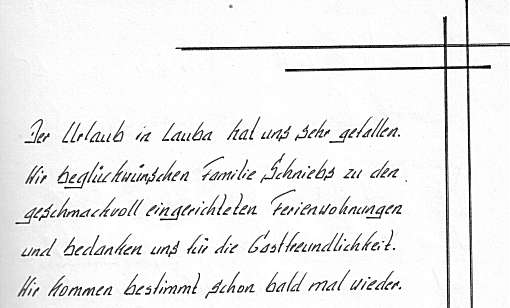 Der Urlaub in Lauba hat uns sehr gefallen.
Wir beglückwünschen Familie Schniebs zu den
geschmackvoll eingerichteten Ferienwohnungen
und bedanken uns für die Gastfreundlichkeit.
Wir kommen bestimmt schon bald mal wieder.